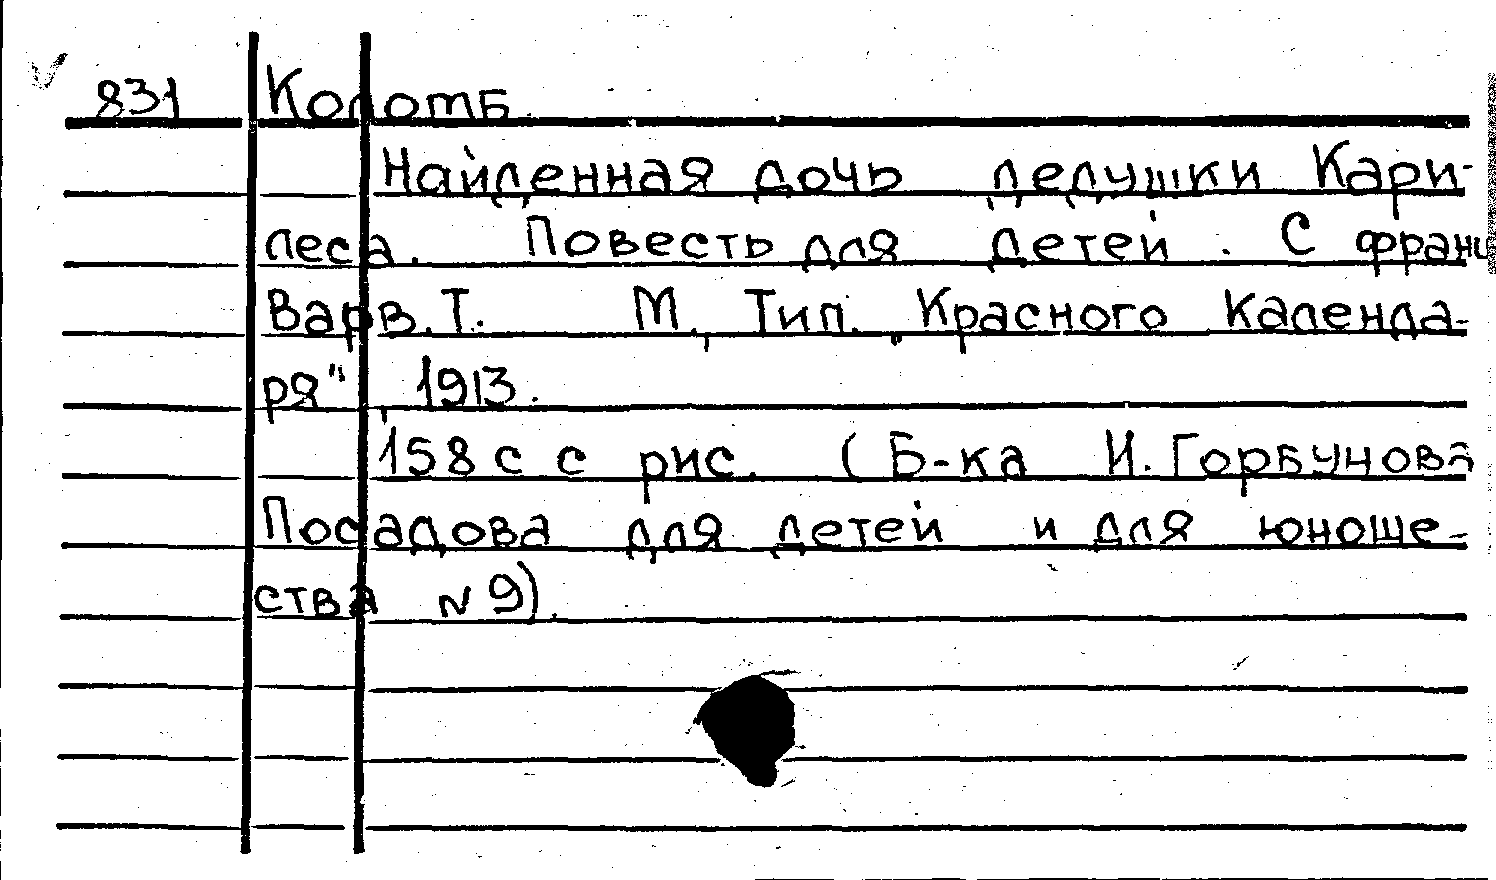 831 Коломб.
Найденная дочь дедушки Кари-
леса. Повесть для детей. С франц
Варв. Т. М., Тип. „Красного Календа-
ря", 1913.
158 с с рис. (Б-ка И. Горбунова
Посадова для детей и для юноше-
ства N 9).